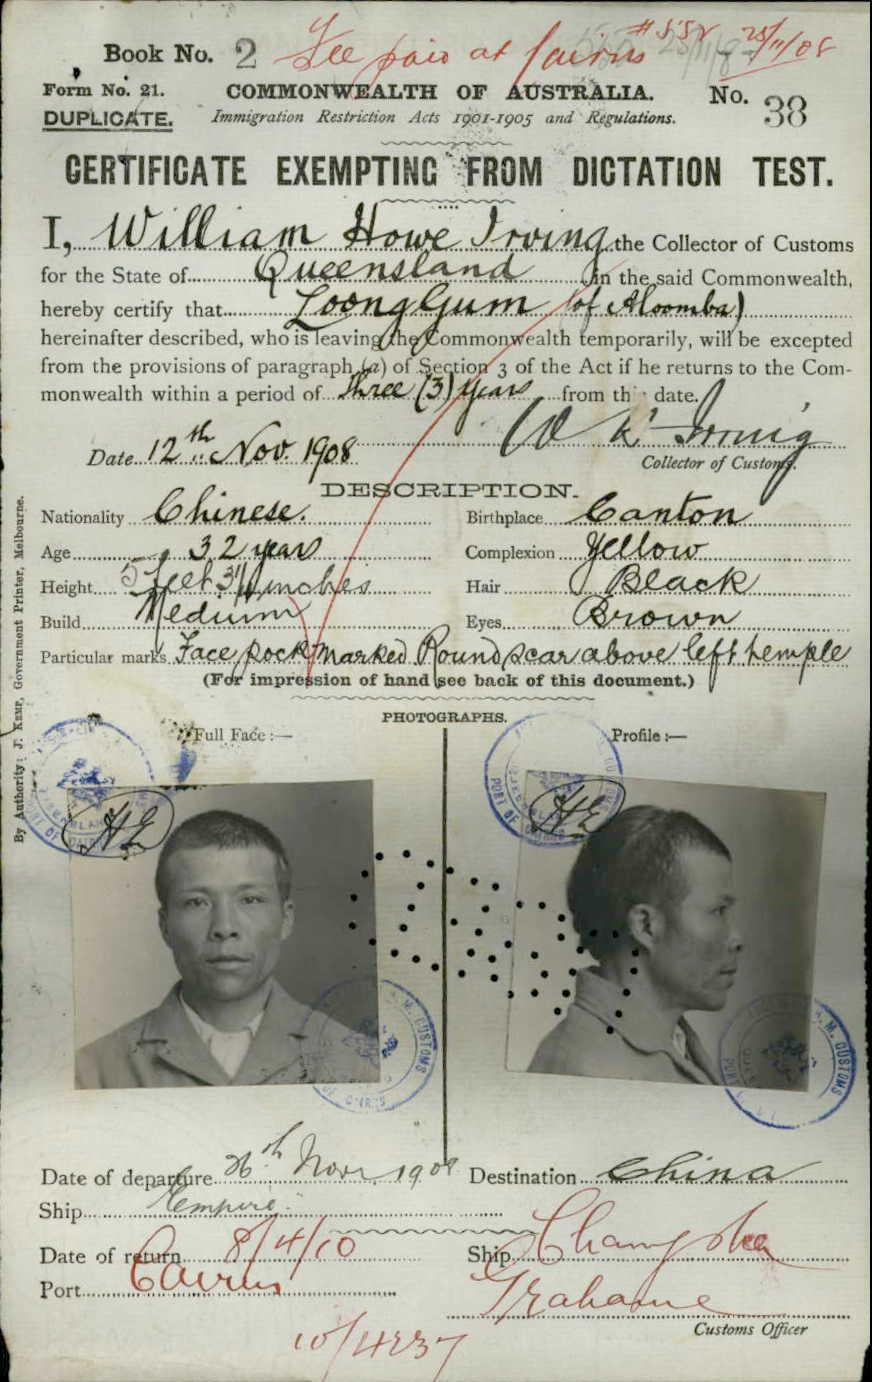 Book No. 2 Fee paid at Cairns #552 25/11/08
Form No. 21. COMMONWEALTH OF AUSTRALIA. No. 38
DUPLICATE. Immigration Restriction Acts 1901-1905 and Regulations.
CERTIFICATE EXEMPTING FROM DICTATION TEST.
I, William Howe Irving the Collector of Customs
for the State of Queensland in the said Commonwealth,
hereby certify that Loong Gum (of Aloomba)
hereinafter described, who is leaving the Commonwealth temporarily, will be excepted
from the provisions of paragraph (a) of Section 3 of the Act if he returns to the Com-
monwealth within a period of three (3) years from this date.
W H Irving
Date 12th Nov. 1908
Collector of Customs.
DESCRIPTION.
Nationality Chinese. Birthplace Canton
Age 32 years Complexion Yellow
Height 5 feet 3 1/4 inches Hair Black
Build Medium Eyes Brown
Particular marks Face pock marked Round scar above left temple
(For impression of hand see back of this document.)
PHOTOGRAPHS.
Full Face :— Profile :—
HE HE
PORT OF CAIRNS
H.M. CUSTOMS
By Authority: J. Kemp, Government Printer, Melbourne.
Date of departure 26th Novr 1908 Destination China
Ship Empire
Date of return 8/4/10 Ship Changsha
Port Cairns Grahame
Customs Officer
10/4237